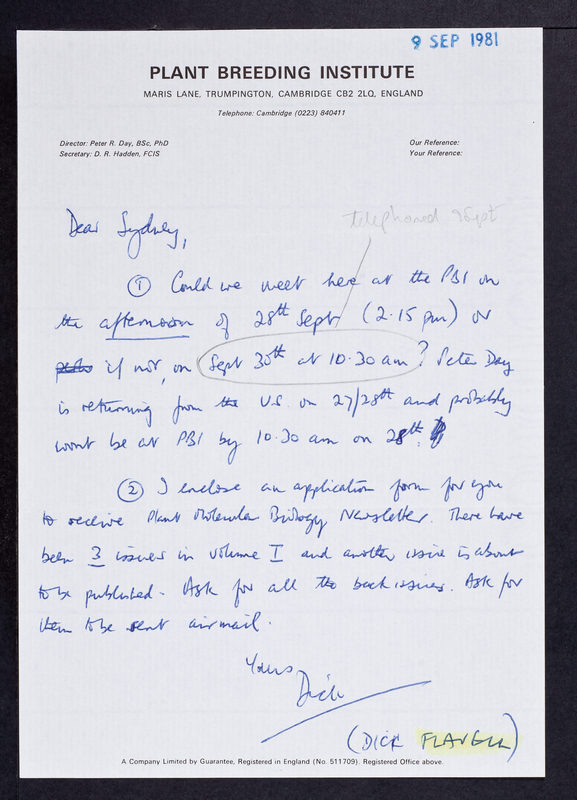 9 SEP 1981
PLANT BREEDING INSTITUTE
MARIS LANE, TRUMPINGTON, CAMBRIDGE CB2 2LQ, ENGLAND
Telephone: Cambridge (0223) 840411
Director: Peter R. Day, BSc, PhD
Secretary: D. R. Hadden, FCIS
Our Reference:
Your Reference:
telephoned 9Sept
Dear Sydney,
① Could we meet here at the PBI on
the afternoon of 28th Sept (2.15 pm) or
if not, on Sept 30th at 10.30 am? Peter Day
is returning from the U.S. on 27/28th and probably
wont be at PBI by 10.30 am on 28th.
② I enclose an application form for you
to receive Plant Molecular Biology Newsletter. There have
been 3 issues in volume I and another issue is about
to be published. Ask for all the back issues. Ask for
them to be sent airmail.
Yours
Dick
(DICK FLAVELL)
A Company Limited by Guarantee, Registered in England (No. 511709). Registered Office above.